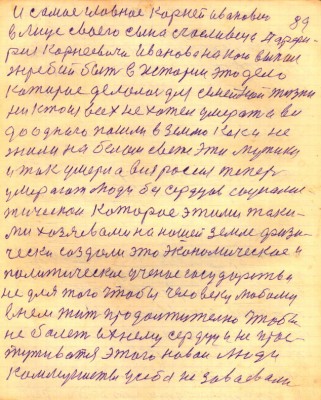 И самое главное Корней иванович
89
в лице своего сына счасливец Парфи-
рия Корнеевича Иванова на кого выпал
жребий быть в Истории это дело
которое делалось для смертной жизни
никто из всех не хотел умерать а все
до одного пошли в землю как и не
жили на белом свете эти мужики
и так умерла вся росия теперь
умерают люди без сердцов социалис
тической которое этими таки-
ми хозяевами на ношей земле физи-
чески создали это экономическое и
политическое ученое государство и
не для того чтобы человеку любому
в нем жит продолжително чтобы
не болет ихнему сердцу и не прос-
туживатся этого новои люди
коммунисты у себя не завоевали